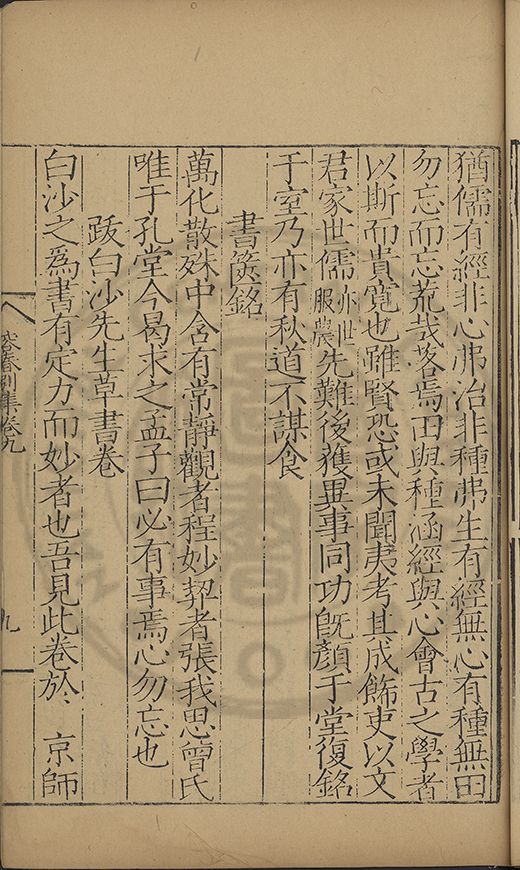 猶儒有經非心弗治非種弗生有經無心有種無田
勿忘而忘荒哉落焉田與種涵經與心會古之學者
以斯而貴寬也雖賢恐或未聞夷考其成飾吏以文
君家世儒亦世服農先難後獲異事同功旣顏于堂復銘
于室乃亦有秋道不謀食
書篋銘
萬化散殊中含有常靜觀者程妙契者張我思曾氏
唯于孔堂今曷求之孟子曰必有事焉心勿忘也
跋白沙先生草書卷
白沙之爲書有定力而妙者也吾見此卷於 京師
容春別集卷九
九